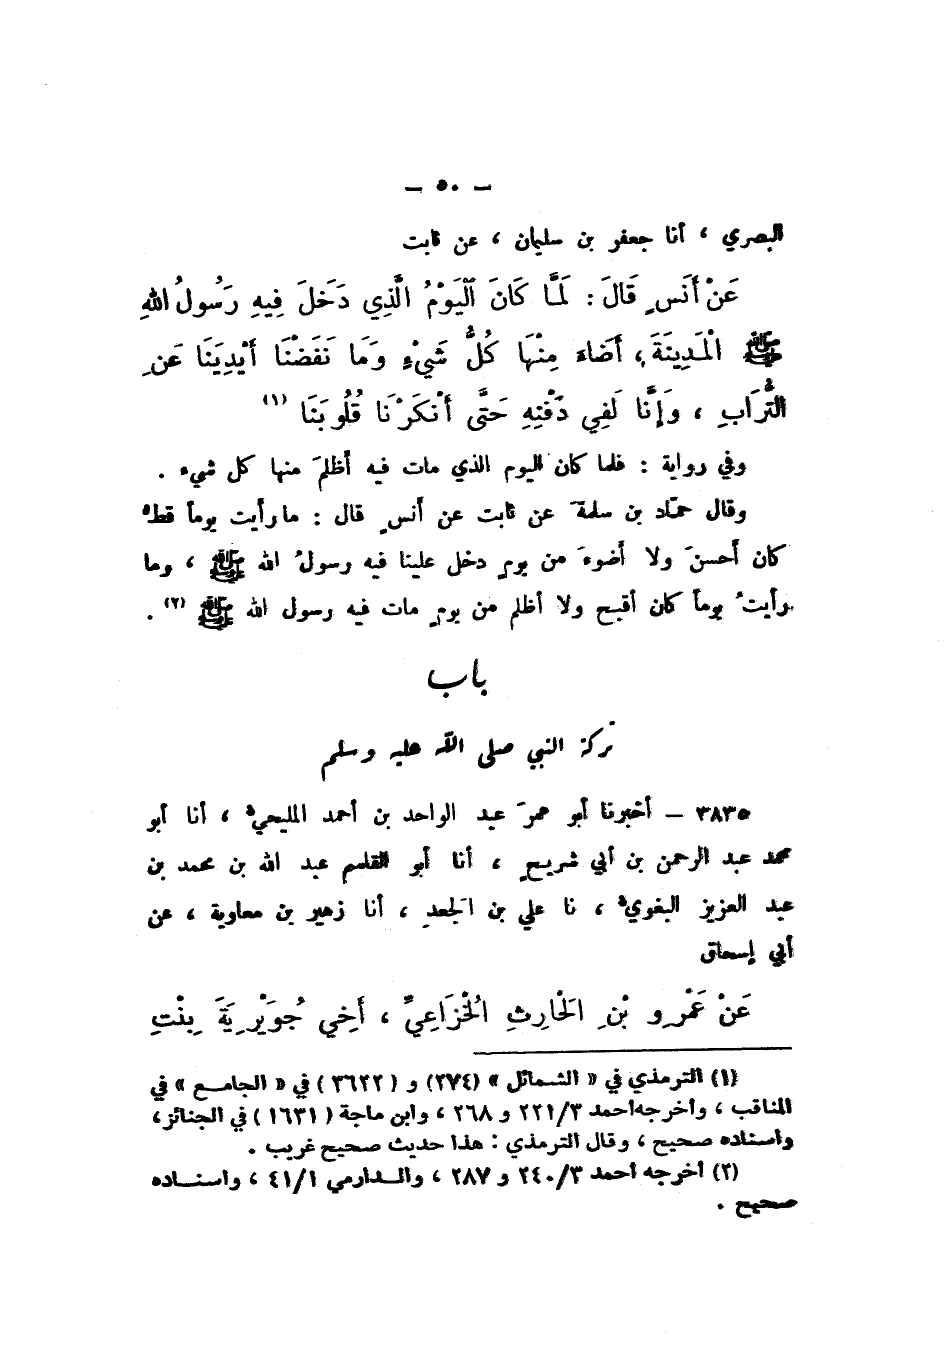 — ٥٠ —
البصري ، أنا جعفر بن سليمان ، عن ثابت
عَنْ أَنَسٍ قَالَ : لَمَّا كَانَ اَلْيَوْمُ الَّذِي دَخَلَ فِيهِ رَسُولُ اللهِ
ﷺ الْمَدِينَةَ ، أَضَاءَ مِنْهَا كُلُّ شَيْءٍ وَمَا نَفَضْنَا أَيْدِيَنَا عَنِ
التُّرَابِ ، وَإِنَّا لَفِي دَفْنِهِ حَتَّى أَنْكَرْنَا قُلُوبَنَا (١)
وفي رواية : فلما كان اليوم الذي مات فيه أظلمَ منها كل شيء .
وقال حمّاد بن سلمةَ عن ثابت عن أنسٍ قال : ما رأيت يوماً قطُّ
كان أحسنَ ولا أضوءَ من يومٍ دخل علينا فيه رسولُ الله ﷺ ، وما
رأيتُ يوماً كان أقبح ولا أظلم من يومٍ مات فيه رسول الله ﷺ (٢) .
باب
تركة النبي صلى الله عليه وسلم
٣٨٣٥ — أخبرنا أبو عمرَ عبد الواحد بن أحمد المليحيُّ ، أنا أبو
محمد عبد الرحمن بن أبي شريحٍ ، أنا أبو القاسم عبد الله بن محمد بن
عبد العزيز البغويُّ ، نا علي بن الجعدِ ، أنا زهير بن معاوية ، عن
أبي إسحاق
عَنْ عَمْرِو بْنِ الحَارِثِ الخُزَاعِيِّ ، أَخِي جُوَيْرِيَةَ بِنْتِ
(١) الترمذي في « الشمائل » (٣٧٤) و ( ٣٦٢٢ ) في « الجامع » في
المناقب ، وأخرجه أحمد ٢٢١/٣ و ٢٦٨ ، وابن ماجة ( ١٦٣١ ) في الجنائز ،
واسناده صحيح ، وقال الترمذي : هذا حديث صحيح غريب .
(٢) أخرجه أحمد ٢٤٠/٣ و ٢٨٧ ، والدارمي ٤١/١ ، واسناده
صحيح .